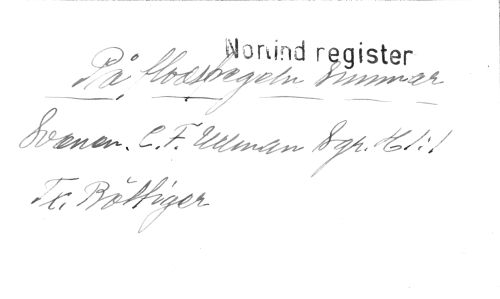 Norlind register
På flodspegeln simmar
Svanen. C. F. Ullman Sgr. H 1:1
Tx. Böttiger